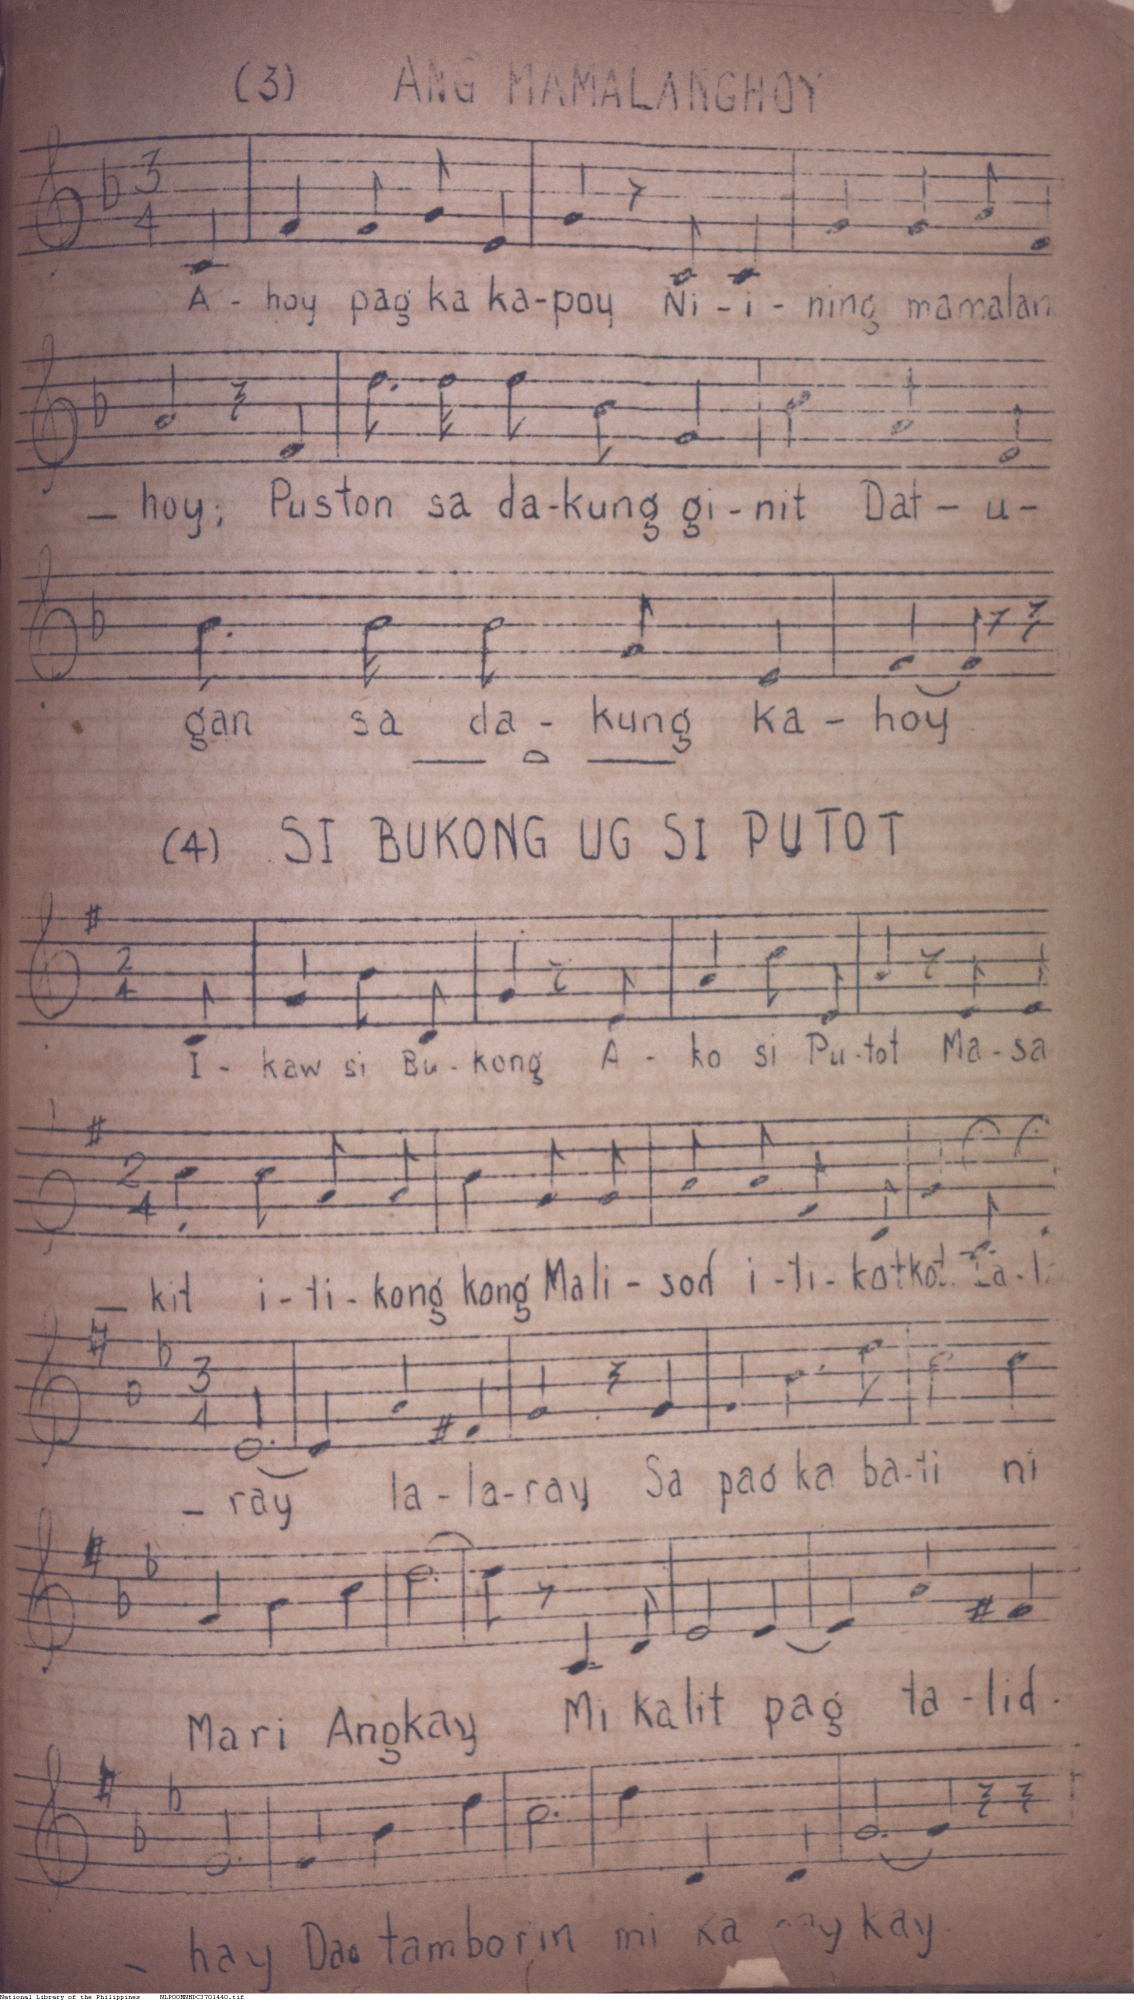 (3) ANG MAMALANGHOY
3
4
A - hoy pag ka ka-poy Ni - i - ning mamalan
_ hoy; Puston sa da-kung gi-nit Dat - u -
gan sa da - kung ka - hoy
(4) SI BUKONG UG SI PUTOT
2
4
I - kaw si Bu - kong A - ko si Pu-tot Ma-sa
2
4
_ kit i-ti-kong kong Mali-sod i-ti-kotkot.
3
4
_ ray la-la-ray Sa pag ka ba-ti ni
Mari Angkay Mi kalit pag ta-lid.
- hay Dao tamborin mi ka kay
National Library of the Philippines NLPOOMNHDC3701440.tif